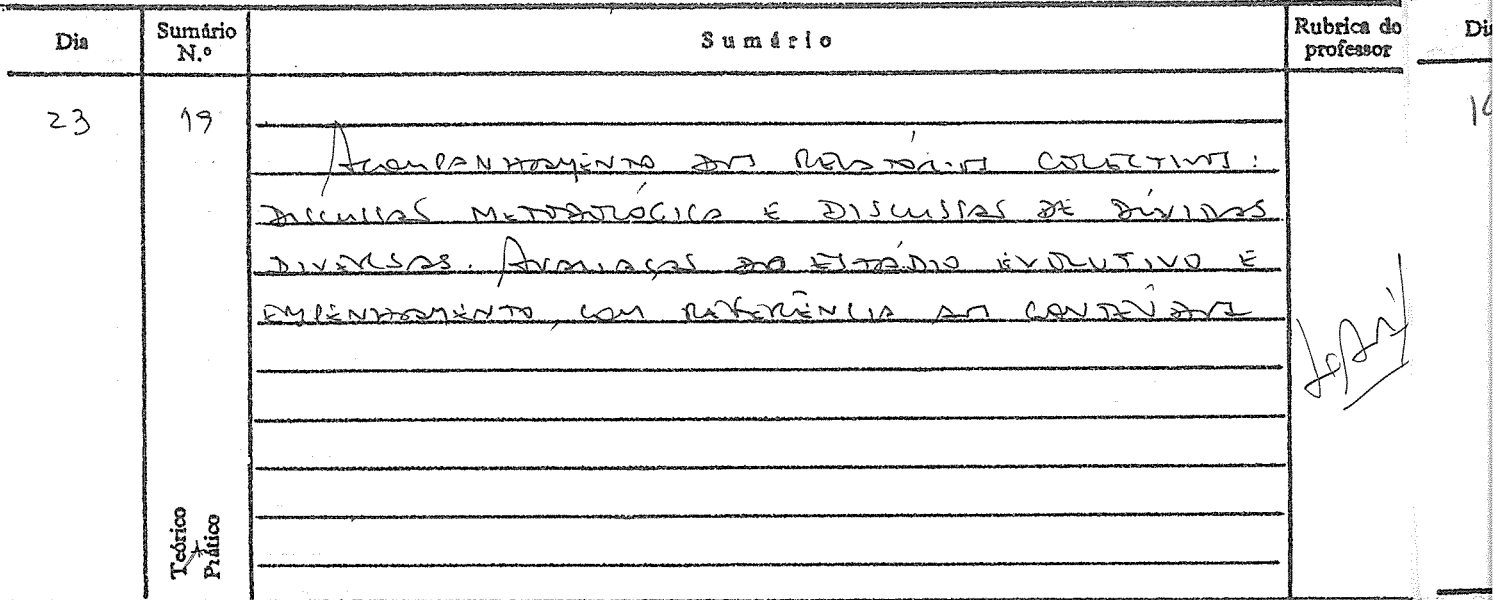 Dia
Sumário N.º
Sumário
Rubrica do professor
23
19
Acompanhamento dos relatórios colectivos:
discussão metodológica e discussão de dúvidas
diversas. Avaliação do estádio evolutivo e
empenhamento, com referência aos conteúdos
Teórico
Prático